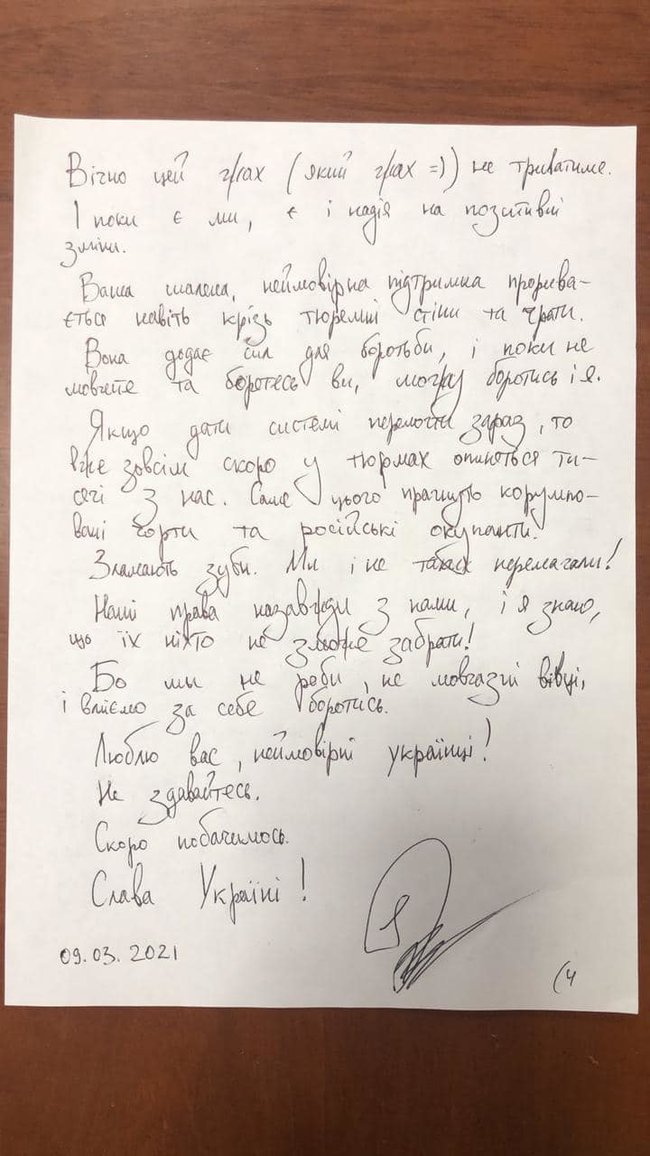 Вічно цей грах (який грах =)) не триватиме.
І поки є ми, є і надія на позитивні
зміни.
Ваша шалена, неймовірна підтримка прорива-
ється навіть крізь тюремні стіни та грати.
Вона додає сил для боротьби, і поки не
мовчите та боретесь ви, можу боротись і я.
Якщо дати системі перемогти зараз, то
вже зовсім скоро у тюрмах опиняться ти-
сячі з нас. Саме цього прагнуть корумпо-
вані чорти та російські окупанти.
Зламають зуби. Ми і не таких перемагали!
Наші права назавжди з нами, і я знаю,
що їх ніхто не зможе забрати!
Бо ми не раби, не мовчазні вівці,
і вміємо за себе боротись.
Люблю вас, неймовірні українці!
Не здавайтесь.
Скоро побачимось.
Слава Україні!
09.03.2021
(4